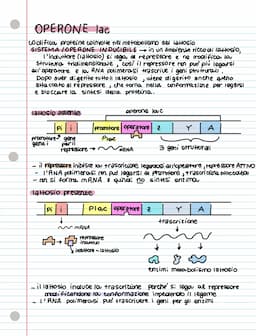 OPERONE lac
codifica proteine coinvolte nel metabolismo del lattosio
SISTEMA / OPERONE INDUCIBILE → in un ambiente ricco di lattosio,
l'induttore (lattosio) si lega al repressore e ne modifica la
struttura tridimensionale, così il repressore non può più legarsi
all'operatore e la RNA polimerasi trascrive i geni strutturali.
Dopo aver digerito tutto il lattosio, viene digerito anche quello
bloccante il repressore, che torna nella conformazione per legarsi
e bloccare la sintesi delle proteine.
lattosio assente
operone lac
Pi i promotore operatore Z Y A
promotore gene
gene i per il
repressore → RNA
3 geni strutturali
- il repressore inibisce la trascrizione legandosi all'operatore, repressore ATTIVO
- l'RNA polimerasi non può legarsi al promotore, trascrizione bloccata
- non si forma mRNA e quindi no sintesi enzimi
lattosio presente
Pi i Plac operatore Z Y A
mRNA
trascrizione
repressore
inattivo
induttore = lattosio
enzimi metabolismo lattosio
- il lattosio induce la trascrizione perché si lega al repressore
modificandone la conformazione impedendo il legame
- l'RNA polimerasi può trascrivere i geni per gli enzimi